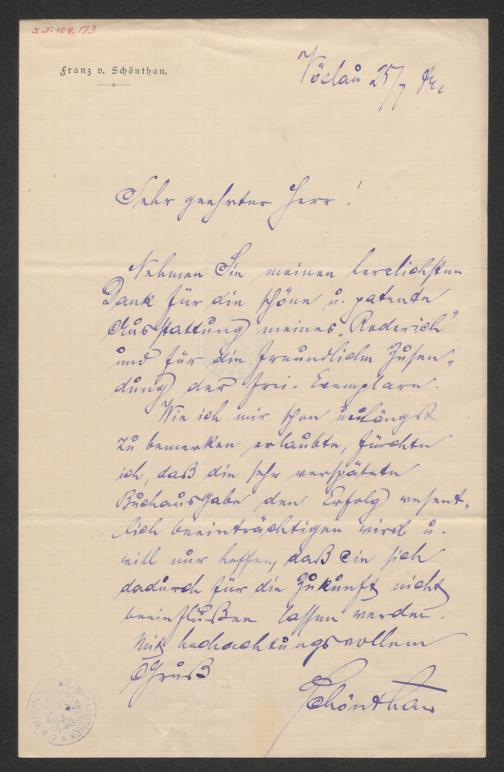 I. N. 109.173
Franz v. Schönthan.
Vöslau 25/7
Sehr geehrter Herr!
Nehmen Sie meinen herzlichsten
Dank für die schöne u. patente
Ausstattung meines „Roderich"
und für die freundliche Zusen-
dung der frei-Exemplare.
Wie ich mir schon unlängst
zu bemerken erlaubte, fürchte
ich, daß die sehr verspätete
Buchausgabe den Erfolg wesent-
lich beeinträchtigen wird u.
will nur hoffen, daß Sie sich
dadurch für die Zukunft nicht
beeinflußen lassen werden.
Mit hochachtungsvollem
Gruß
Schönthan